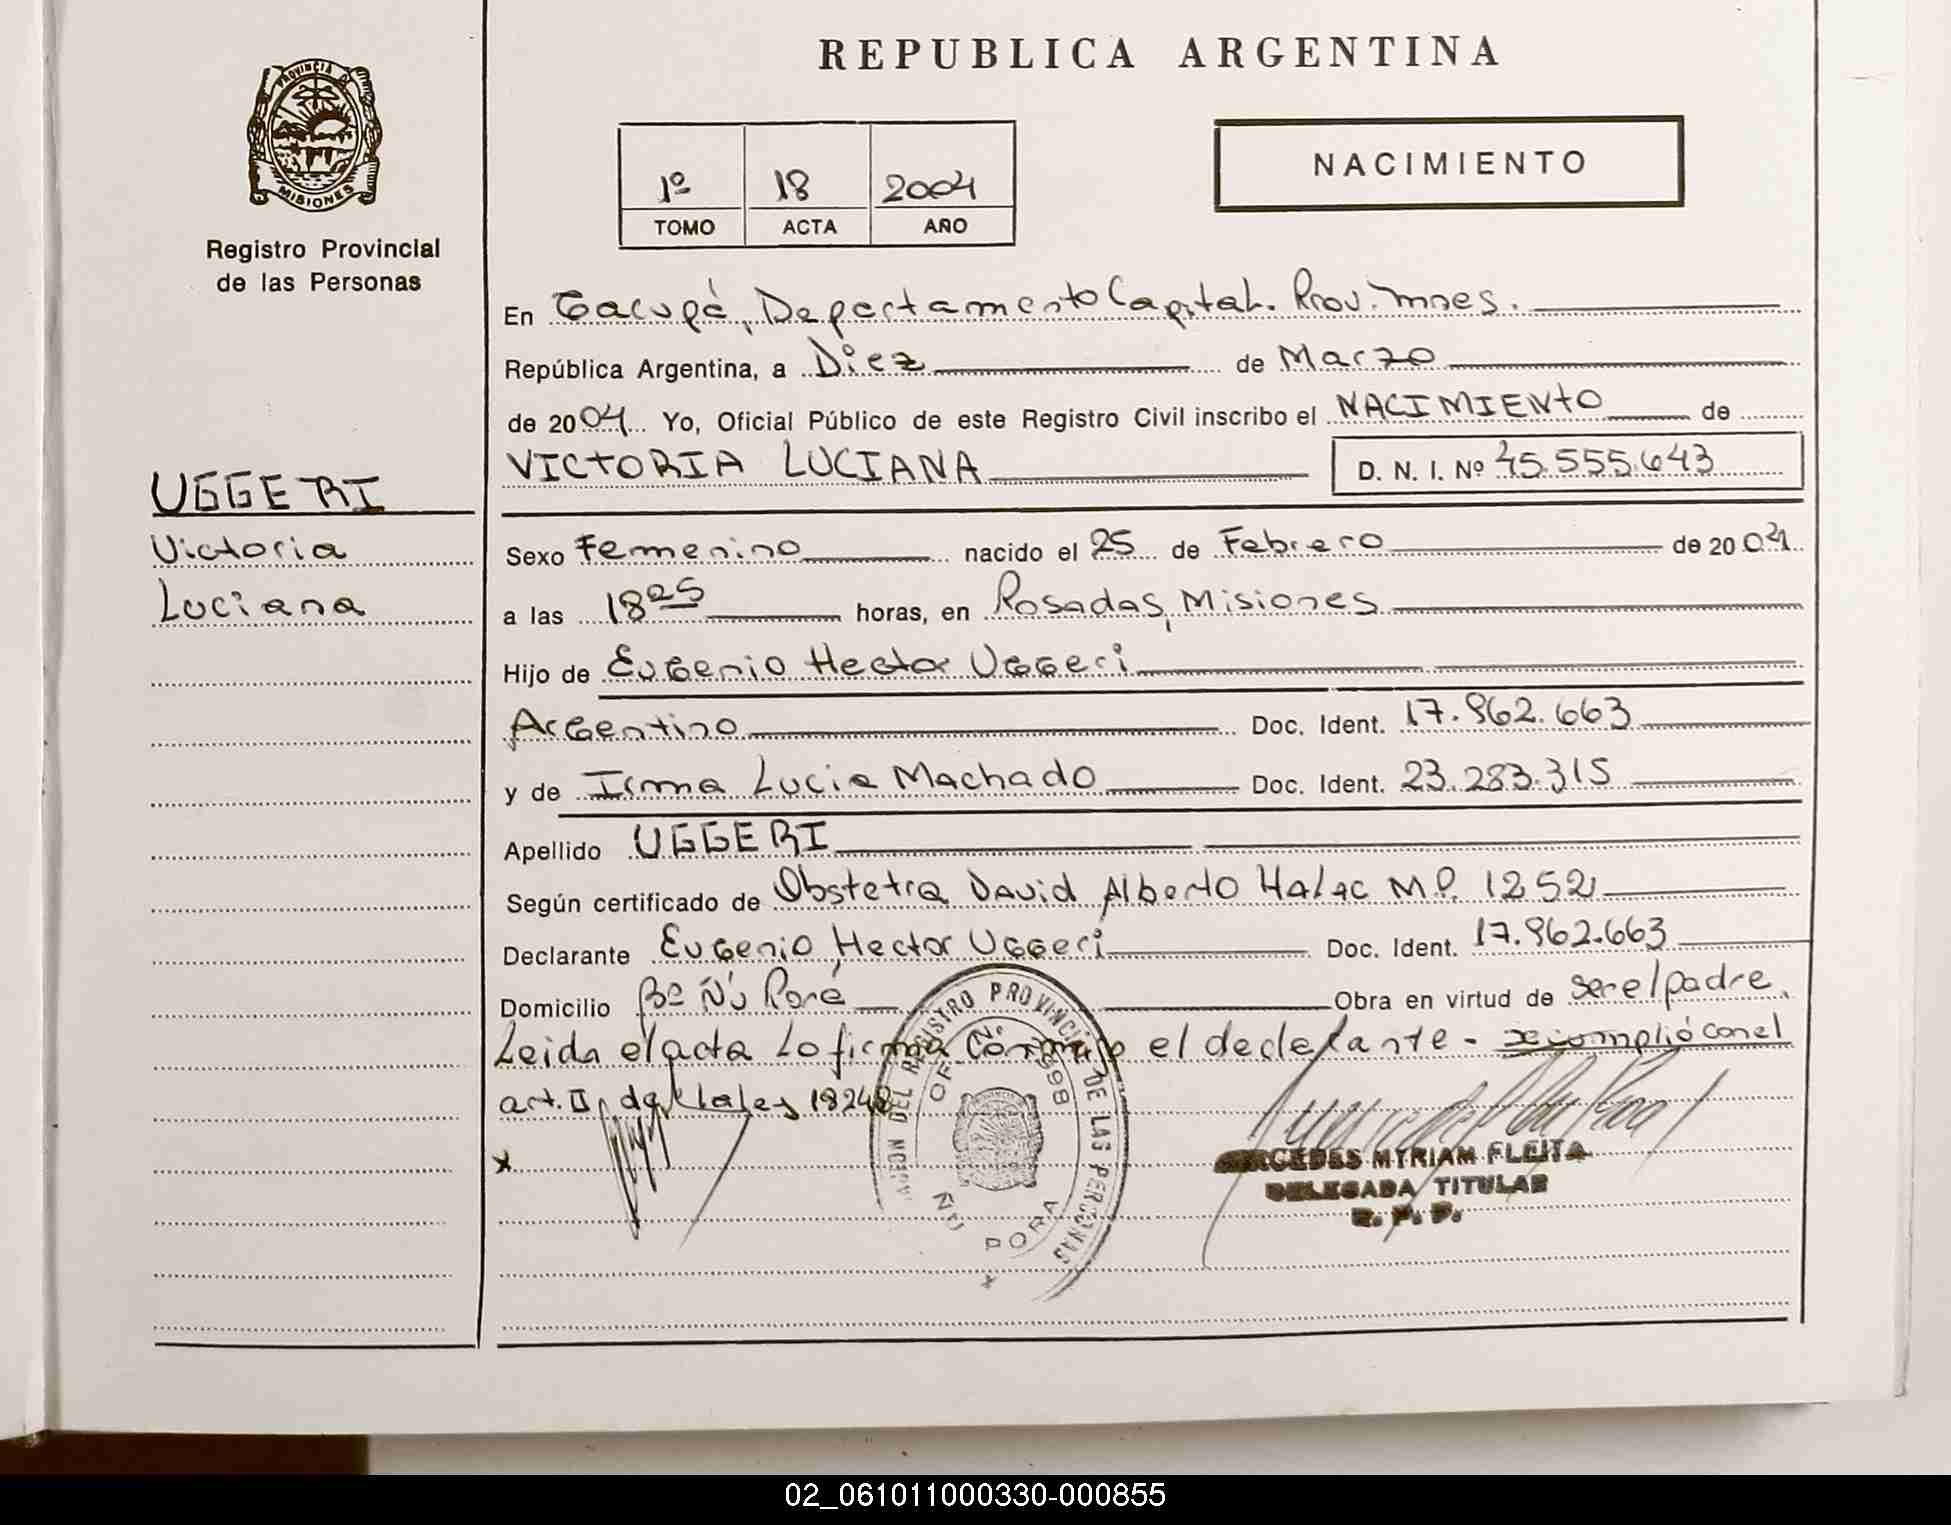 REPUBLICA ARGENTINA
PROVINCIA DE
MISIONES
Registro Provincial
de las Personas
1º 18 2004
TOMO ACTA AÑO
NACIMIENTO
En Garupá, Departamento Capital. Prov. Mnes.
República Argentina, a Diez de Marzo
de 2004 Yo, Oficial Público de este Registro Civil inscribo el NACIMIENTO de
VICTORIA LUCIANA D. N. I. Nº 45.555.643
UGGERI
Victoria
Luciana
Sexo Femenino nacido el 25 de Febrero de 2004
a las 18 25 horas, en Posadas, Misiones
Hijo de Eugenio Hector Uggeri
Argentino Doc. Ident. 17.962.663
y de Irma Lucia Machado Doc. Ident. 23.283.315
Apellido UGGERI
Según certificado de Obstetra David Alberto Halac M.P. 1252
Declarante Eugenio Hector Uggeri Doc. Ident. 17.962.663
Domicilio Bº Ñu Porá Obra en virtud de ser el padre.
Leida el acta La firma Conmigo el declarante - se cumplió con el
art. II de la Ley 18248
x
REGISTRO PROVINCIAL DE LAS PERSONAS
OFIC. Nº 1998
ÑU PORA
MERCEDES MYRIAM FLEITA
DELEGADA TITULAR
R. P. P.
02_061011000330-000855